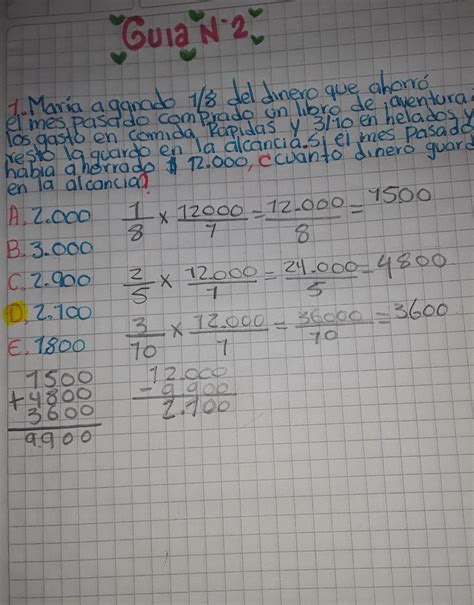 Guia N°2
1. Maria a ganado 1/8 del dinero que ahorró
el mes pasado comprado un libro de aventura
los gastó en comida Rapidas y 3/10 en helados y
resto la guardo en la alcancia. si el mes pasada
habia ahorrado $ 12.000, ccuanto dinero guard
en la alcancia?
A. 2.000
B. 3.000
C. 2.900
D. 2.100
E. 1800
1/8 x 12000/1 = 12.000/8 = 1500
2/5 x 12.000/1 = 24.000/5 = 4800
3/10 x 12.000/1 = 36000/10 = 3600
1500
+ 4800
3600
9.900
12.000
- 9.900
2.100